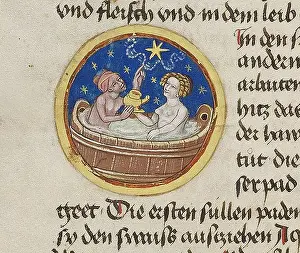 vnd fleisch vnd in dem leib
In den s
andern
arbaiten
hitz das
der har
tut die
ser pad
tgeet · Die ersten sullen paden
sy den swaiß ausziehen